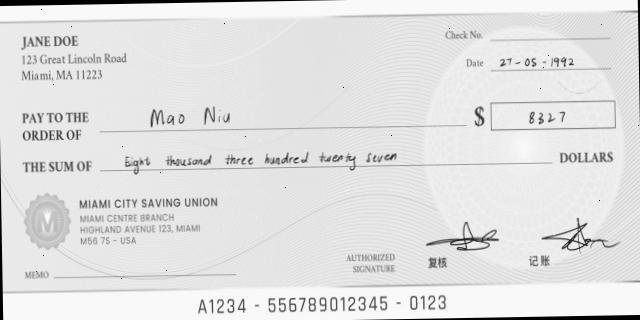 JANE DOE
123 Great Lincoln Road
Miami, MA 11223
Check No.
Date 27-05-1992
PAY TO THE ORDER OF Mao Niu $ 8327
THE SUM OF Eight thousand three hundred twenty seven DOLLARS
M
MIAMI CITY SAVING UNION
MIAMI CENTRE BRANCH
HIGHLAND AVENUE 123, MIAMI
M56 7S - USA
MEMO
AUTHORIZED SIGNATURE
复核
记账
A1234 - 556789012345 - 0123